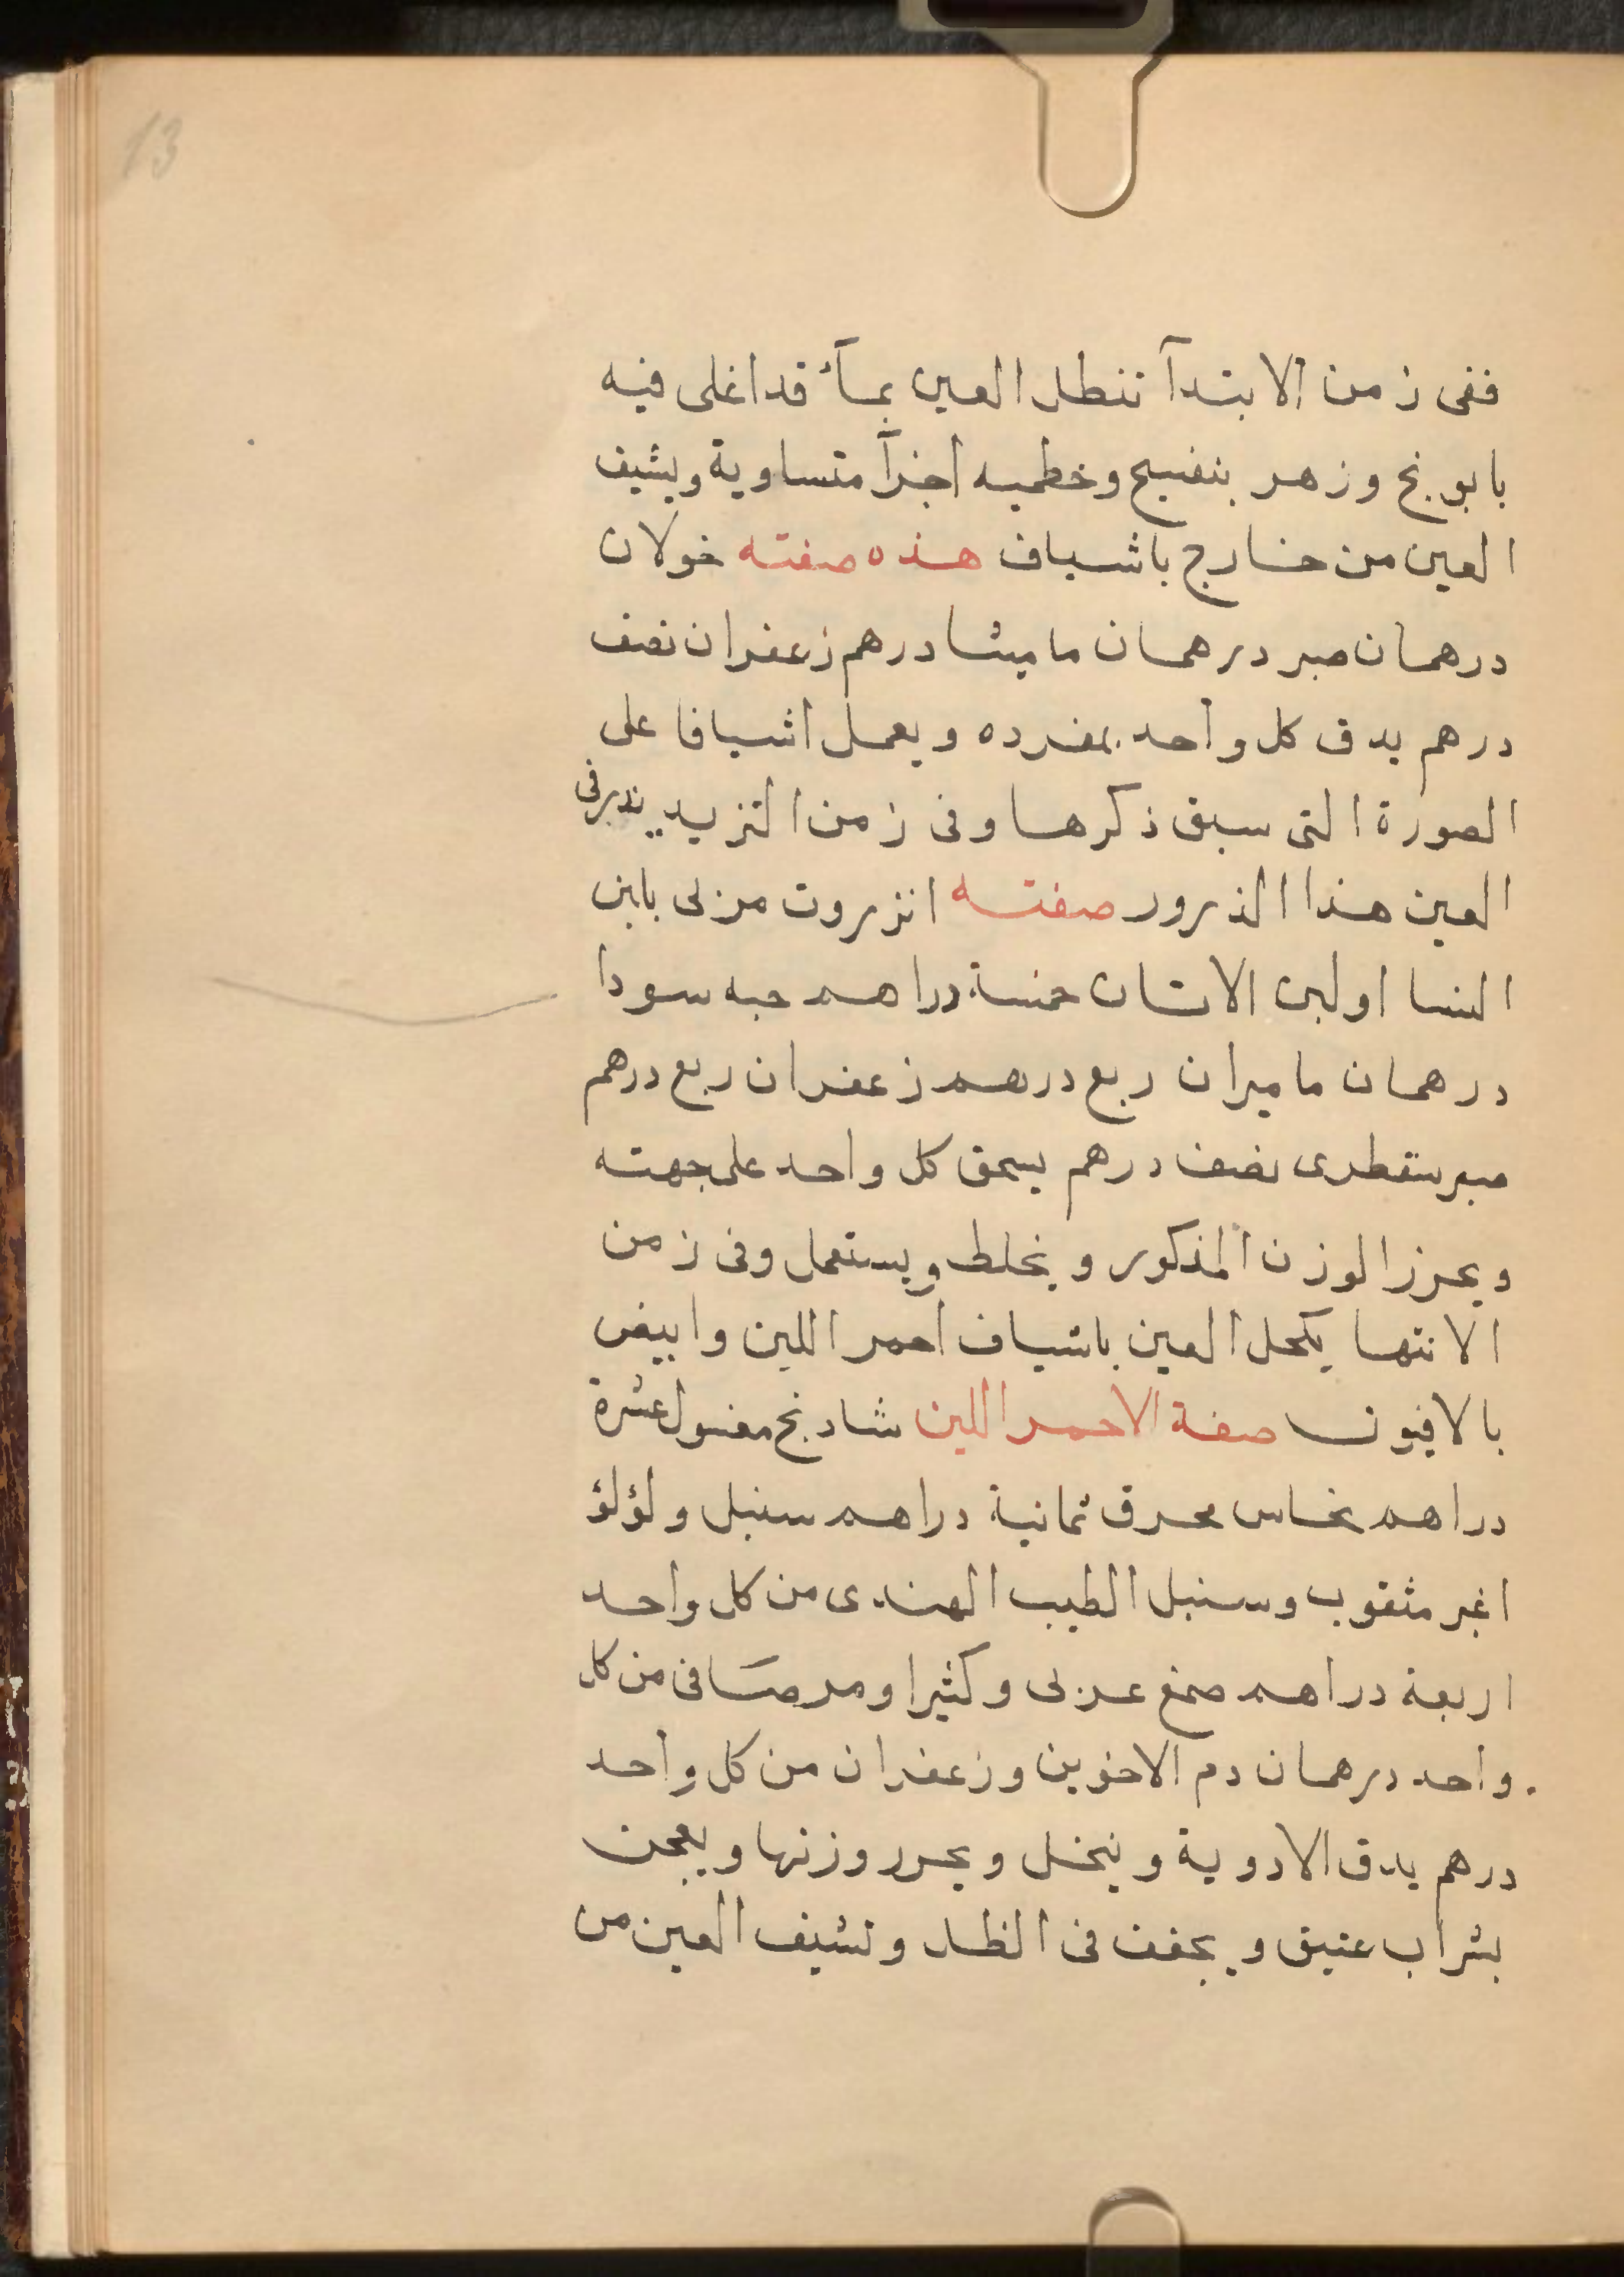 13
ففى زمن الابتدآ تنطل العين بمآء قد اغلى فيه
بابونج وزهر بنفسج وخطميه اجزآ متساوية ويشيف
العين من خارج باشياف هذه صفته خولان
درهمان صبر درهمان ماميثا درهم زعفران نصف
درهم يدق كل واحد بمفرده ويعمل اشيافا على
الصورة التى سبق ذكرها وفى زمن التزيد يذر فى
العين هذا الذرور صفته انزروت مربى بلبن
النسا اولبن الاتان خمسة دراهم حبه سودا
درهمان ماميران ربع درهم زعفران ربع درهم
صبر سقطرى نصف درهم يسحق كل واحد على جهته
ويحرز الوزن المذكور ويخلط ويستعمل وفى زمن
الانتها يكحل العين باشياف احمر اللين وابيض
بالافيون صفة الاحمر اللين شادنج مغسول عشرة
دراهم نحاس محرق ثمانية دراهم سنبل ولؤلؤ
اغير مثقوب وسنبل الطيب الهندى من كل واحد
اربعة دراهم صمغ عربى وكثيرا ومر صافى من كل
واحد درهمان دم الاخوين وزعفران من كل واحد
درهم يدق الادوية وينخل ويحرر وزنها ويعجن
بشراب عتيق ويجفف فى الظل وتشيف العين من